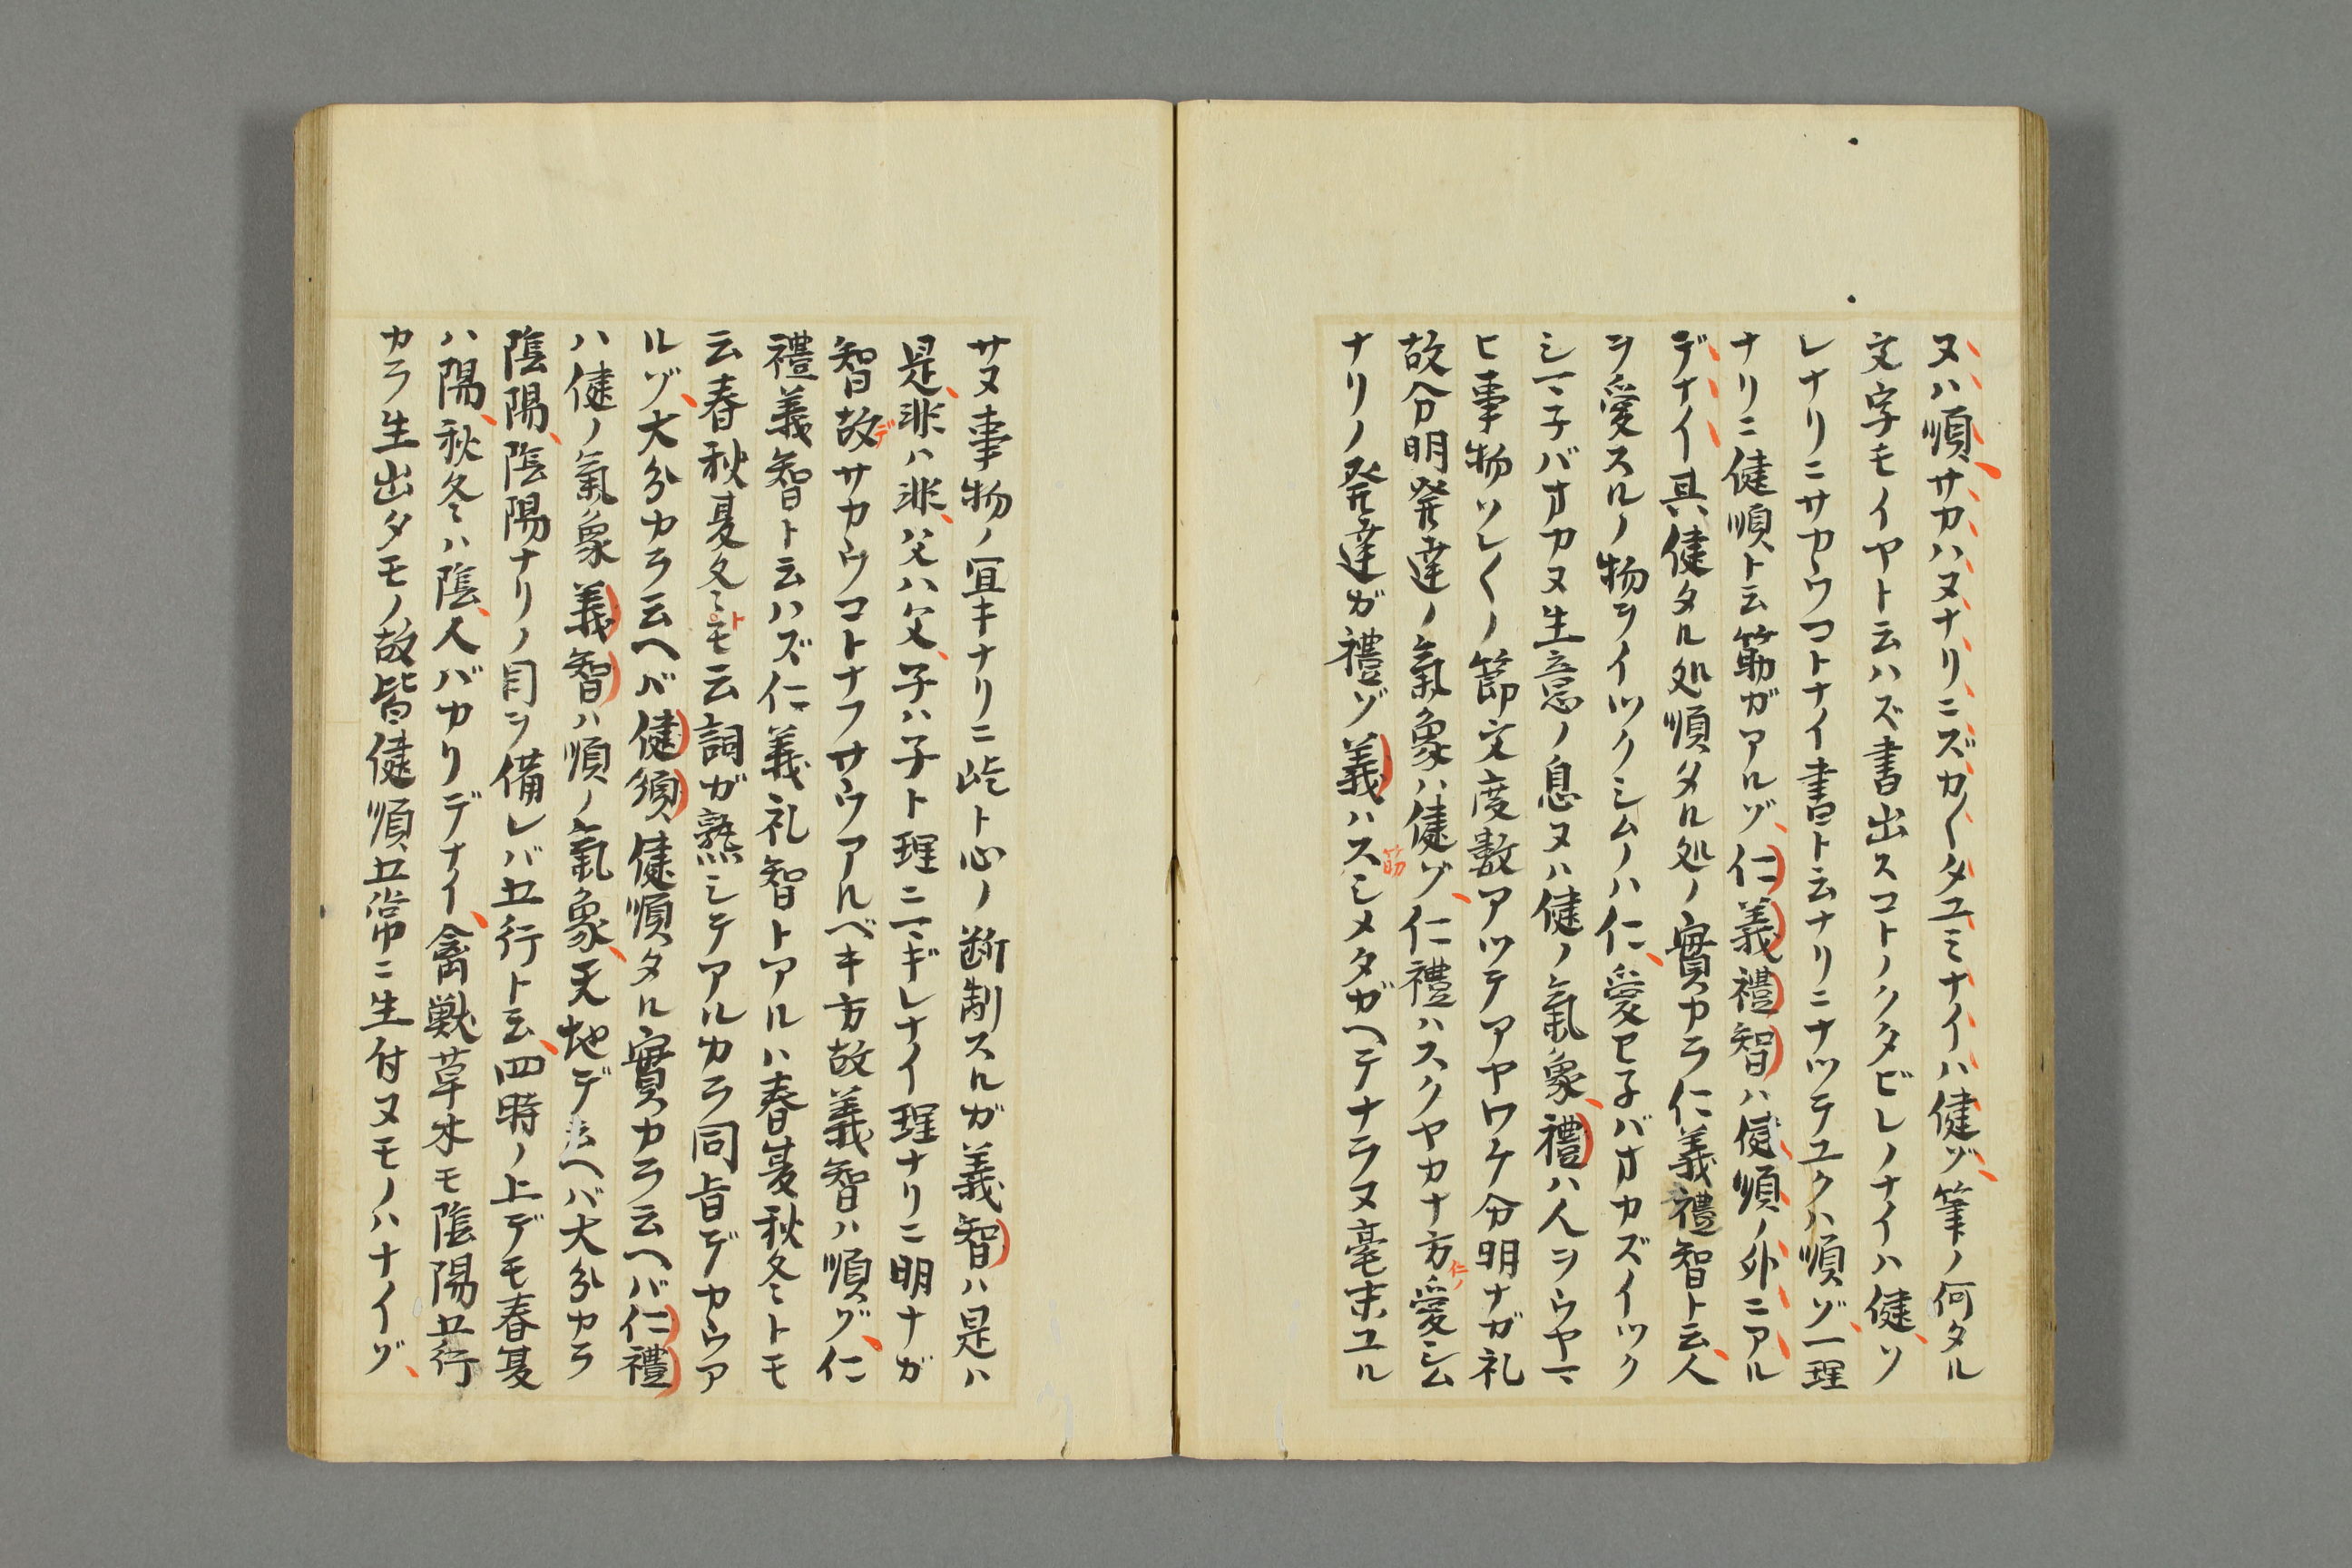 ヌハ順、サカハヌナリニズカ〱タユミナイハ健ゾ、筆ノ何タル
文字モイヤト云ハズ書出スコトノクタビレノナイハ健、ソ
レナリニサカウコトナイ書ト云ナリニナツテユクハ順ゾ、一理
ナリニ健順ト云筋ガアルゾ、仁義禮智ハ健順ノ外ニアル
デナイ、其健タル処順タル処ノ實カラ仁義禮智ト云、人
ヲ愛スルノ物ヲイツクシムノハ仁、愛セ子バオカズイツク
シマ子バオカヌ生意ノ息ヌハ健ノ氣象、禮ハ人ヲウヤマ
ヒ事物ソレ〱ノ節文度数アツテアヤワケ分明ナガ礼
故分明発達ノ氣象ハ健ゾ、仁禮ハスクヤカナ方仁ノ愛シム
ナリノ発達ガ禮ゾ義ハ筋スシメタガヘテナラヌ毫末ユル
サヌ事物ノ宜キナリニ屹ト心ノ断制スルガ義智ハ是ハ
是、非ハ非、父ハ父、子ハ子ト理ニマギレナイ理ナリニ明ナガ
智故デサカウコトナフサウアルベキ方故義智ハ順ゾ、仁
禮義智ト云ハズ仁義礼智トアルハ春夏秋冬トモ
云春秋夏冬トモ云詞ガ熟シテアルカラ同旨デカウア
ルゾ、大分カラ云ヘバ健須健順タル實カラ云ヘバ仁禮
ハ健ノ氣象義智ハ順ノ氣象、天地デ云ヘバ大分カラ
陰陽、陰陽ナリノ目ヲ備レバ五行ト云、四時ノ上デモ春夏
ハ陽、秋冬ハ陰、人バカリデナイ、禽獣草木モ陰陽五行
カラ生出タモノ故皆健順五常ニ生付ヌモノハナイゾ、